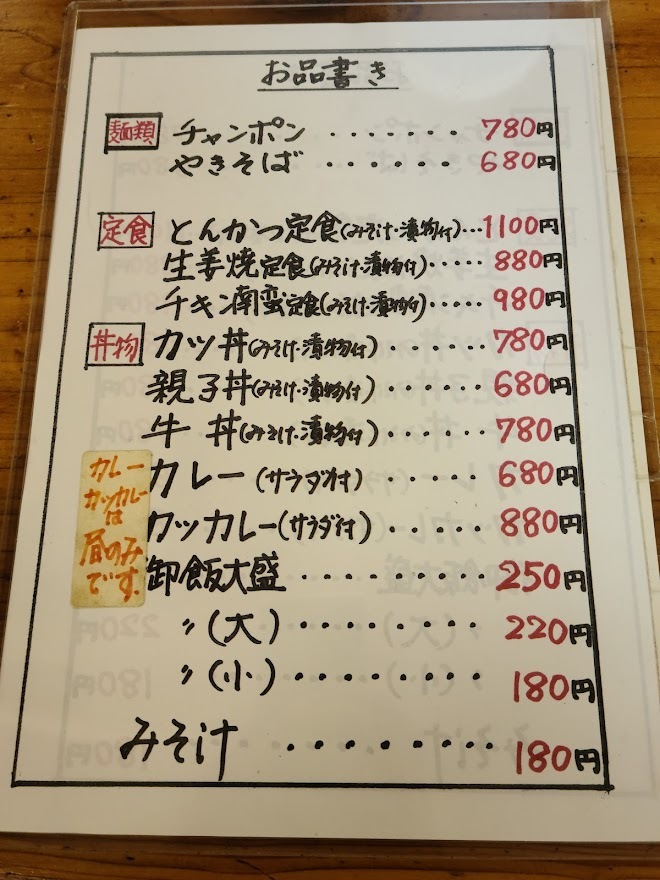 お品書き
麺類 チャンポン ・・・・・・・ 780円
やきそば ・・・・・・ 680円
定食 とんかつ定食(みそ汁・漬物付)・・・1100円
生姜焼定食(みそ汁・漬物付)・・・・・ 880円
チキン南蛮定食(みそ汁・漬物付)・・・・・ 980円
丼物 カツ丼(みそ汁・漬物付)・・・・・・ 780円
親子丼(みそ汁・漬物付)・・・・・・ 680円
牛丼(みそ汁・漬物付)・・・・・・ 780円
カレー(サラダ付)・・・・・・ 680円
カツカレー(サラダ付)・・・・・ 880円
カレー
カツカレー
は
昼のみ
です.
御飯大盛・・・・・・・・・・ 250円
〃(大)・・・・・・・・・ 220円
〃(小)・・・・・・・・・ 180円
みそ汁 ・・・・・・・・・・ 180円